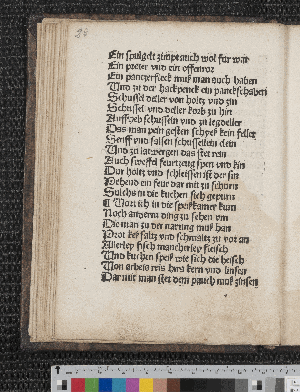 Ein spulgelt zimpraüch wol für war
Ein preter vnd ein offenror
Ein pantzerfleck muß man auch haben
Vnd zu der hackpenck ein panckschaben
Schussel deller von holtz vnd zin
Schussel vnd deller korb zu hin
Auffheb schusseln vnd zu legdeller
Das man pein gesten sch kein feller
Senff vnd salsen schusselein clein
Vnd zu latwergen das stet rein
Auch swefel feurtzeug span vnd kin
Dor holtz vnd schleissen ist der sin
Behend ein feur dar mit zu schürn
Solchs in die kuchen sich gepürn
Wort ich in die speißkamer kum
Noch anderm ding zu sehen vm
Die man zu der narung muß han
Prot keß saltz vnd schmaltz zu vor an
Allerley fisch mancherley fleisch
Vnd kuchen speiß wie sich die heisch
Von arbeis reis hirs kern vnd linsen
Dar mit man stet dem pauch muß zinsen